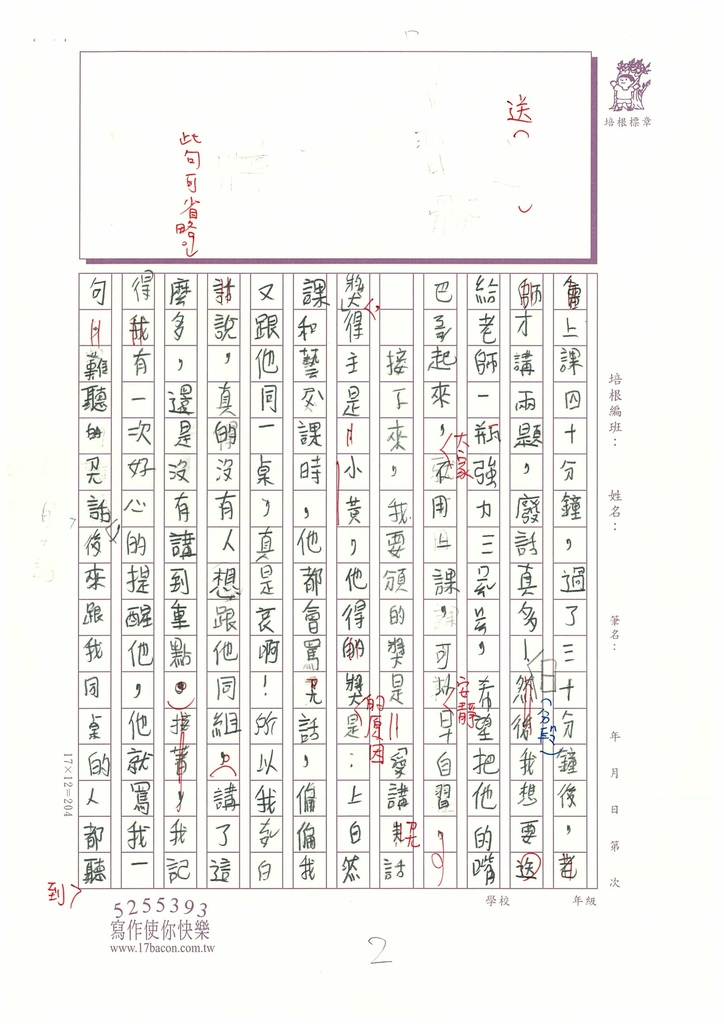 培根標章
送（　）
此句可省略。
會上課四十分鐘，過了三十分鐘後，老
師才講兩題，廢話真多！然後我想要送
給老師一瓶強力三秒膠，希望把他的嘴
巴黏起來，大家用上課，可以安靜早自習，
接下來，我要頒的獎是「愛講屁話
獎」，得主是「小黃」，他得的獎的原因是：上自然
課和藝文課時，他都會罵屁話，偏偏我
又跟他同一桌，真是哀啊！所以我
說，真的沒有人想跟他同組。講了這
麼多，還是沒有講到重點。接著，我記
得我有一次好心的提醒他，他就罵我一
句難聽的屁話，後來跟我同桌的人都聽到
（分段）
培根編班：
姓名：
筆名：
年 月 日 第 次
學校
年級
17×12=204
5255393
寫作使你快樂
www.17bacon.com.tw
2